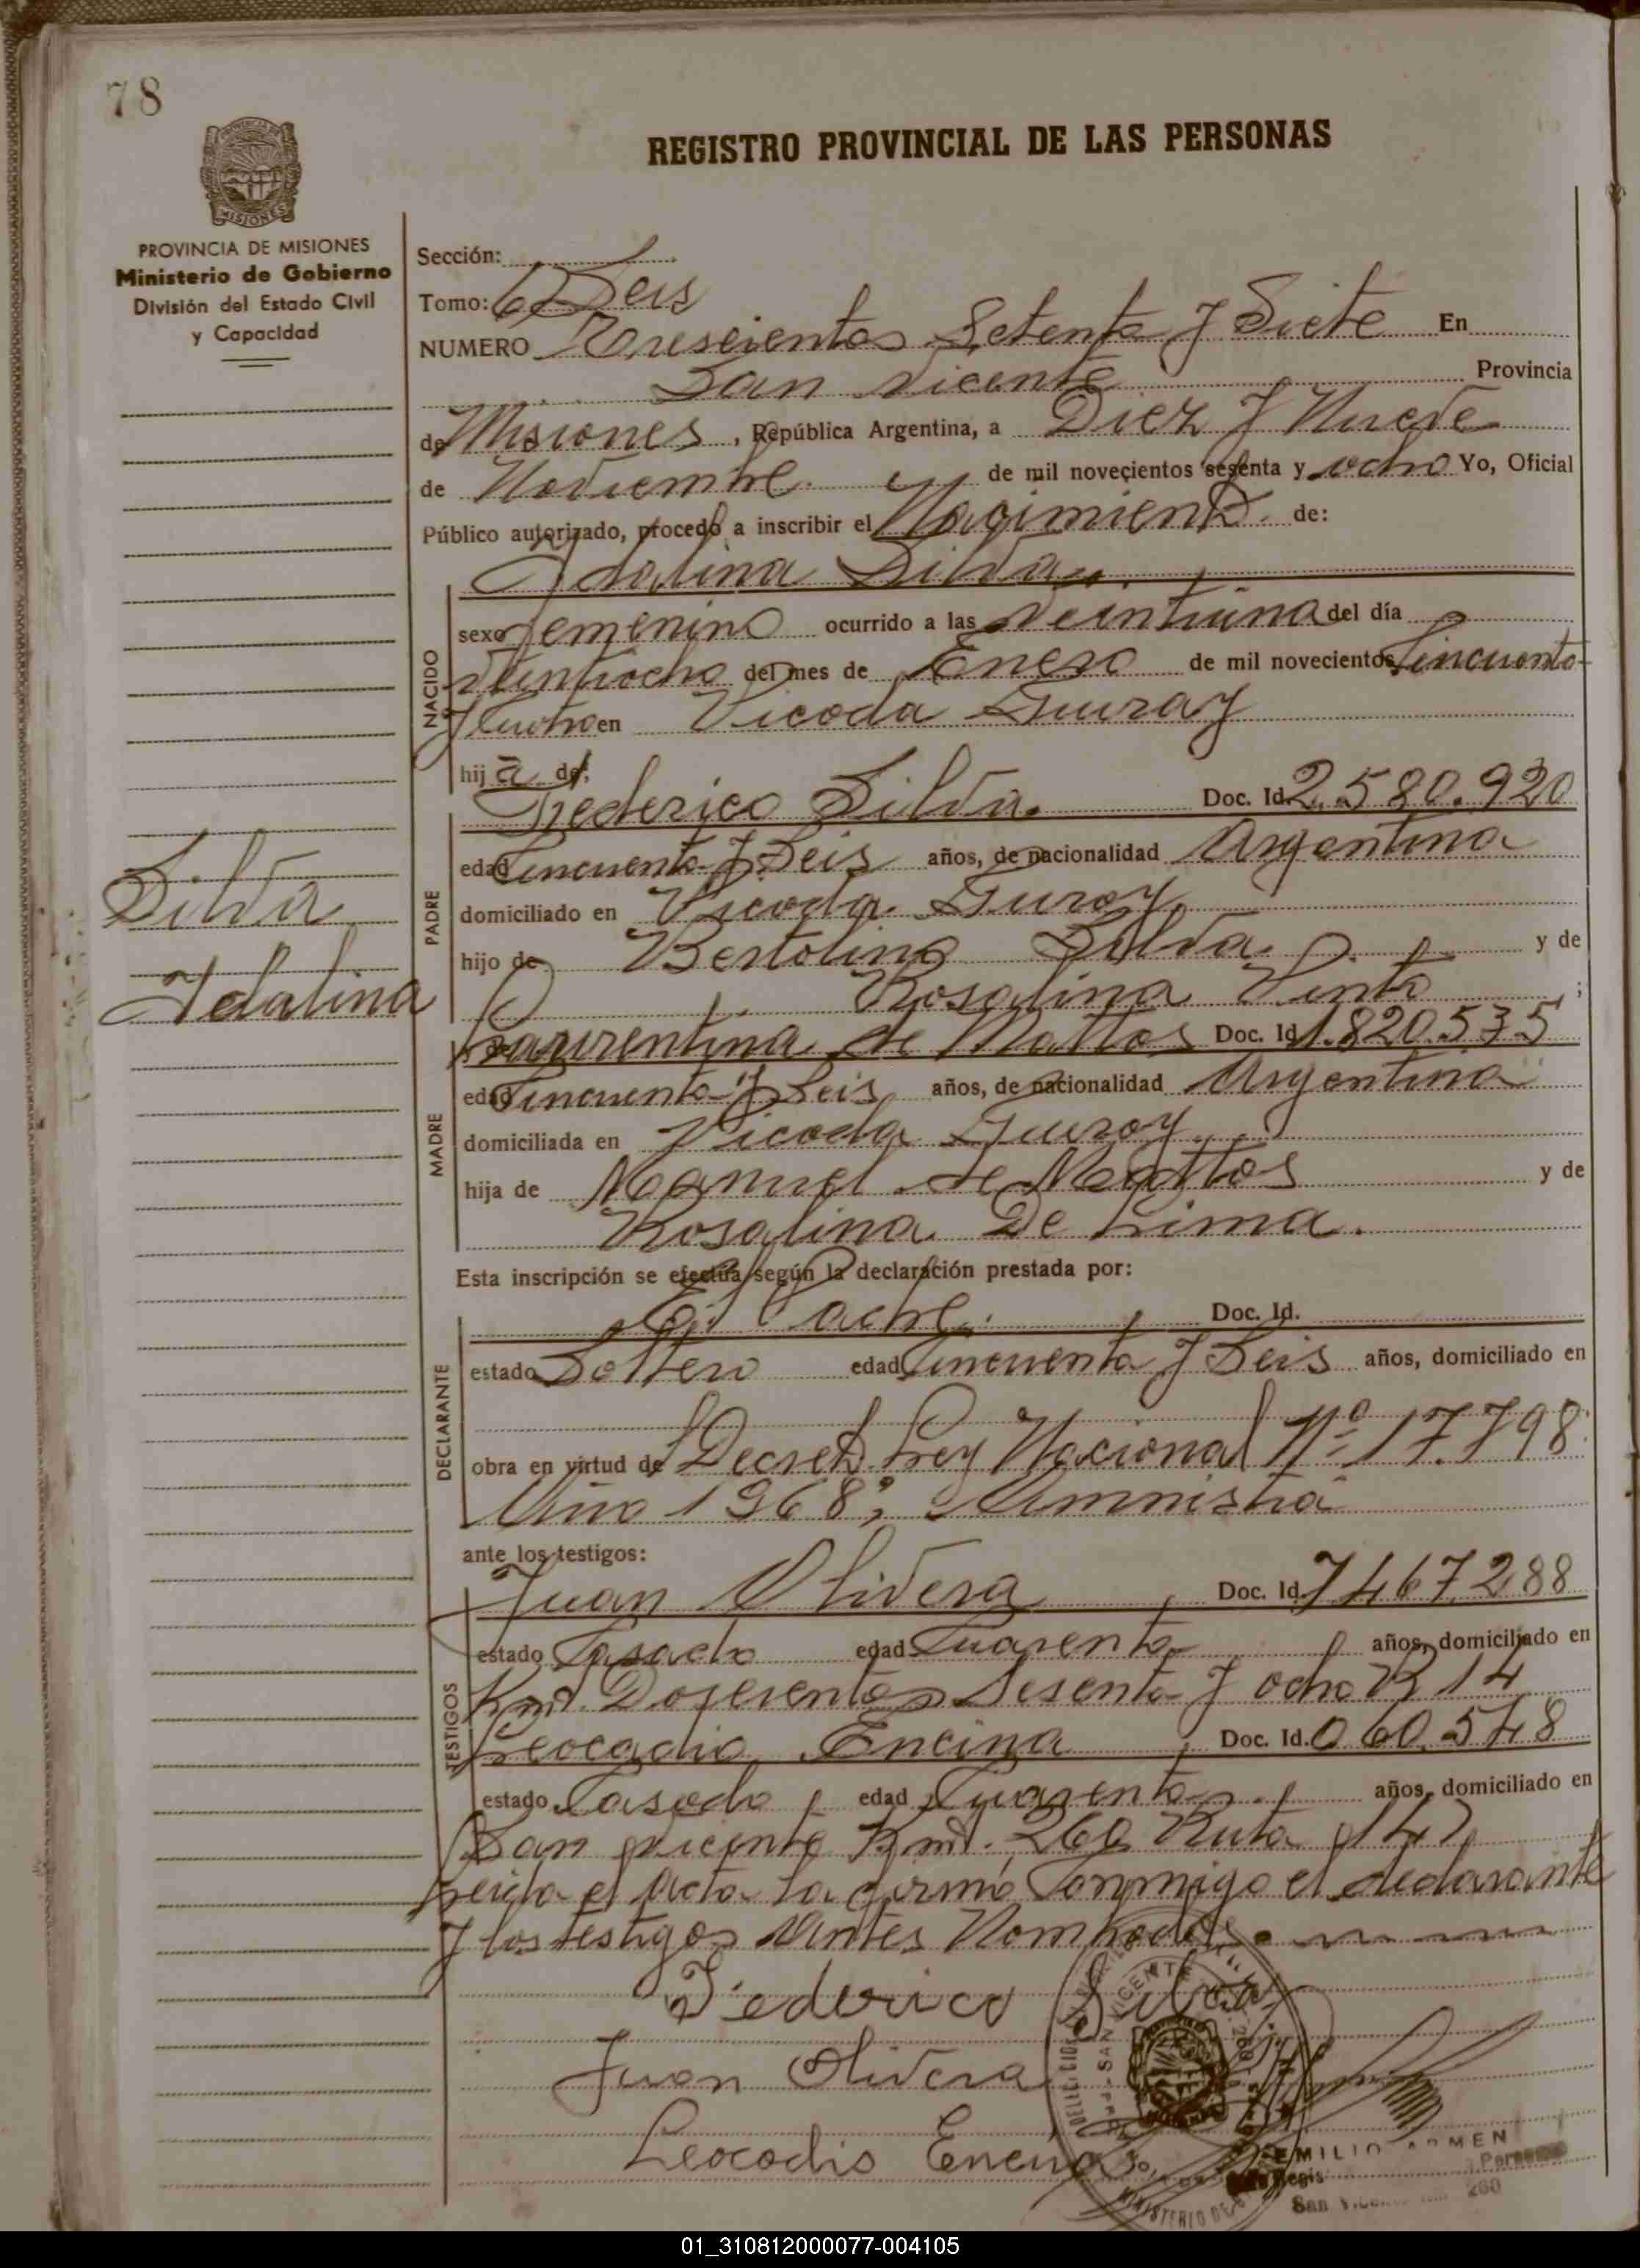 78
REGISTRO PROVINCIAL DE LAS PERSONAS
PROVINCIA DE
MISIONES
PROVINCIA DE MISIONES
Ministerio de Gobierno
División del Estado Civil
y Capacidad
Sección:
Tomo: 6 Seis
NUMERO Trescientos Setenta y Siete En
San Vicente Provincia
de Misiones, República Argentina, a Diez y Nueve
de Noviembre de mil novecientos sesenta y ocho Yo, Oficial
Público autorizado, procedo a inscribir el Nacimiento de:
Idalina Silva
NACIDO
sexo femenino ocurrido a las veintiuna del día
veintiocho del mes de Enero de mil novecientos Cincuenta
y Cuatro en Picada Guray
hija de:
Silva
Idalina
PADRE
Federico Silva. Doc. Id. 2.580.920
edad Cincuenta y Seis años, de nacionalidad Argentina
domiciliado en Picada Guray
hijo de Bertolino Silva y de
Rosalina Pinto ;
MADRE
Laurentina de Mattos Doc. Id 1.820.535
edad Cincuenta y Seis años, de nacionalidad Argentina
domiciliada en Picada Guray
hija de Manuel de Mattos y de
Rosalina De Lima.
Esta inscripción se efectúa según la declaración prestada por:
DECLARANTE
El Padre. Doc. Id.
estado Soltero edad Cincuenta y Seis años, domiciliado en
obra en virtud de Decreto Ley Nacional Nº 17.798
Año 1968; Amnistia
ante los testigos:
TESTIGOS
Juan Olivera Doc. Id. 7467288
estado Casado edad Cuarenta años, domiciliado en
Km. Doscientos Sesenta y ocho R 14
Leocadio Encina Doc. Id. 060.548
estado Casado edad Cuarenta años, domiciliado en
San Vicente Km. 260 Ruta 14
Leida el Acta la firmó Conmigo el declarante
y los testigos Antes Nombrados.
Federico Silva
Juan Olivera
Leocadio Encina
SAN VICENTE
MINISTERIO DE
EMILIO ARMEN
San 260
01_310812000077-004105